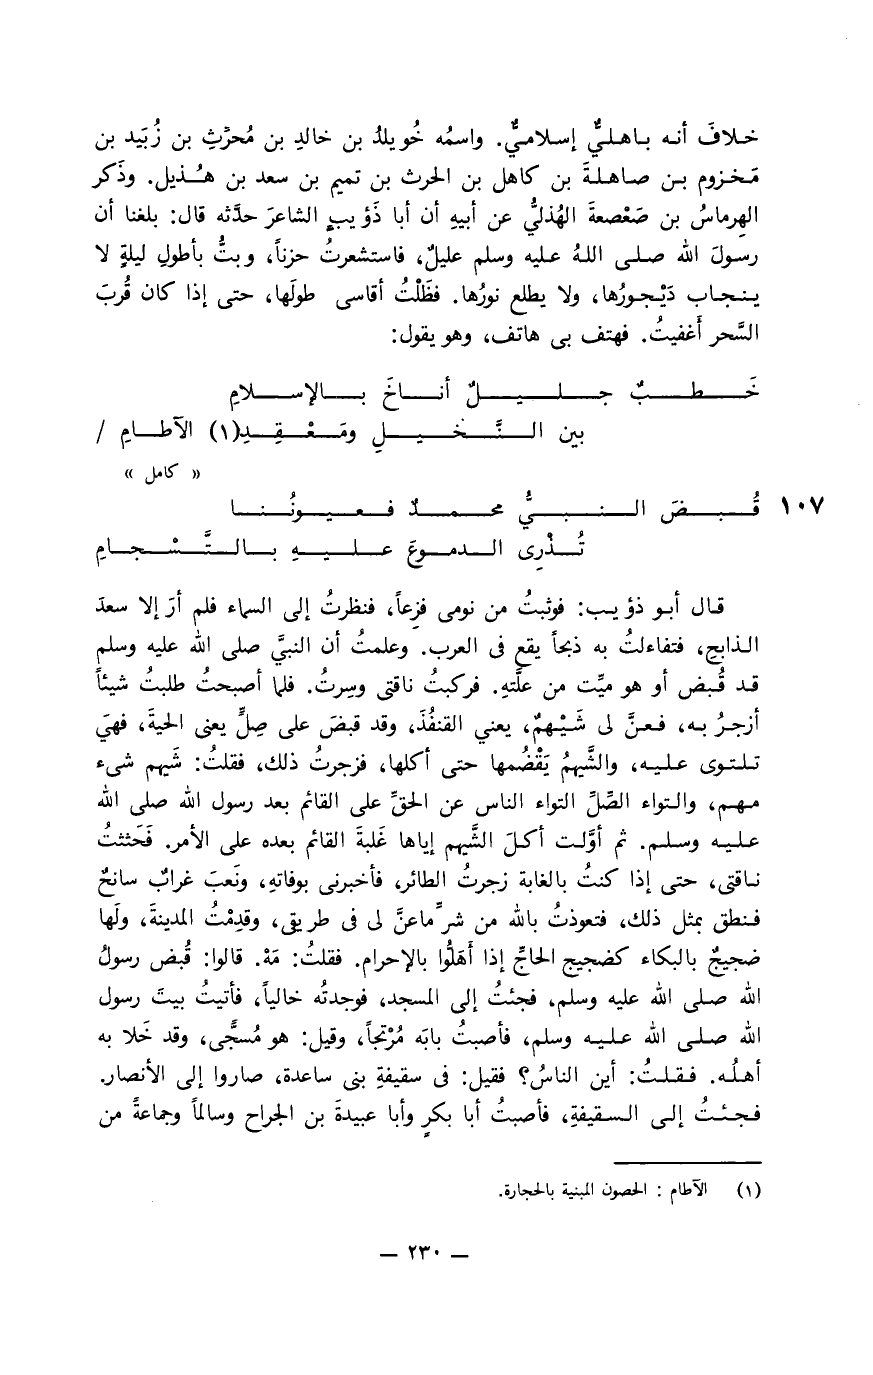 خلافَ أنه باهليٌّ إسلاميٌّ. واسمُه خُويلدُ بن خالدِ بن مُحرِّثِ بن زُبَيد بن
مَخزوم بن صاهلةَ بن كاهل بن الحرث بن تميم بن سعد بن هُذيل. وذَكر
الهِرماسُ بن صَعْصعةَ الهُذليُّ عن أبيهِ أن أبا ذَؤيبٍ الشاعرَ حدَّثه قال: بلغنا أن
رسولَ الله صلى اللهُ عليه وسلم عليلٌ، فاستشعرتُ حزناً، وبتُّ بأطولِ ليلةٍ لا
ينجاب دَيْجورُها، ولا يطلع نورُها. فظَلْتُ أقاسى طولَها، حتى إذا كان قُربَ
السَّحر أَغفيتُ. فهتف بى هاتف، وهو يقول:
خَطبٌ جليلٌ أناخَ بالإسلامِ
بين النَّخيلِ ومَعْقِدِ(١) الآطامِ /
« كامل »
١٠٧ قُبضَ النبيُّ محمدٌ فعيونُنا
تُذْرِى الدموعَ عليهِ بالتَّسْجامِ
قال أبو ذؤيب: فوثبتُ من نومى فزِعاً، فنظرتُ إلى السماء فلم أرَ إلا سعدَ
الذابحِ، فتفاءلتُ به ذبحاً يقع فى العرب. وعلمتُ أن النبيَّ صلى الله عليه وسلم
قد قُبض أو هو ميِّت من علَّتهِ. فركبتُ ناقتى وسِرتُ. فلما أصبحتُ طلبتُ شيئاً
أزجرُ به، فعنَّ لى شَيْهمٌ، يعني القنفُذَ، وقد قبضَ على صِلٍّ يعنى الحيةَ، فهيَ
تلتوى عليه، والشَّيهمُ يَقْضُمها حتى أكلها، فزجرتُ ذلك، فقلتُ: شَيهم شىء
مهم، والتواء الصِّلِّ التواء الناس عن الحقِّ على القائم بعد رسول الله صلى الله
عليه وسلم. ثم أوَّلت أكلَ الشَّيهم إياها غَلبةَ القائم بعده على الأمر. فَحَثثتُ
ناقتى، حتى إذا كنتُ بالغابة زجرتُ الطائر، فأخبرنى بوفاتهِ، ونَعبَ غرابٌ سانحٌ
فنطق بمثل ذلك، فتعوذتُ بالله من شرِّ ماعنَّ لى فى طريقى، وقدِمْتُ المدينةَ، ولَها
ضجيجٌ بالبكاء كضجيج الحاجِّ إذا أَهَلُّوا بالإحرام. فقلتُ: مَهْ. قالوا: قُبض رسولُ
الله صلى الله عليه وسلم، فجئتُ إلى المسجد، فوجدتُه خالياً، فأتيتُ بيتَ رسول
الله صلى الله عليه وسلم، فأصبتُ بابَه مُرْتجاً، وقيل: هو مُسجًّى، وقد خَلا به
أهلُه. فقلتُ: أين الناسُ؟ فقيل: فى سقيفةِ بنى ساعدة، صاروا إلى الأنصار.
فجئتُ إلى السقيفةِ، فأصبتُ أبا بكرٍ وأبا عبيدةَ بن الجراح وسالماً وجماعةً من
(١) الآطام : الحصون المبنية بالحجارة.
— ٢٣٠ —